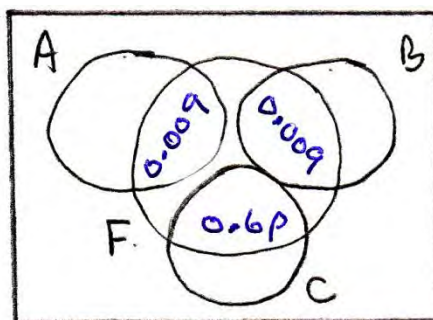 A
B
0.009
0.009
F
0.6p
C